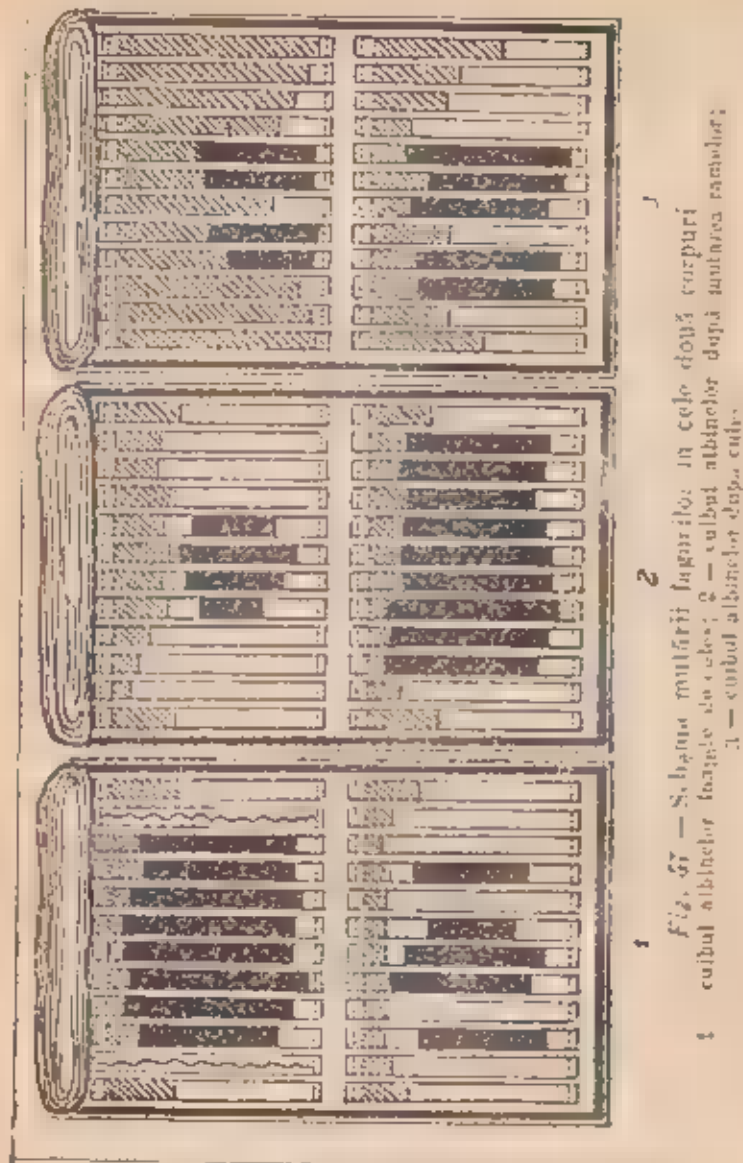 1 2 3
Fig. 67 — Schema mutării fagurilor în cele două corpuri
1 — cuibul albinelor înainte de cules; 2 — cuibul albinelor după mutarea ramelor;
3 — cuibul albinelor după cules